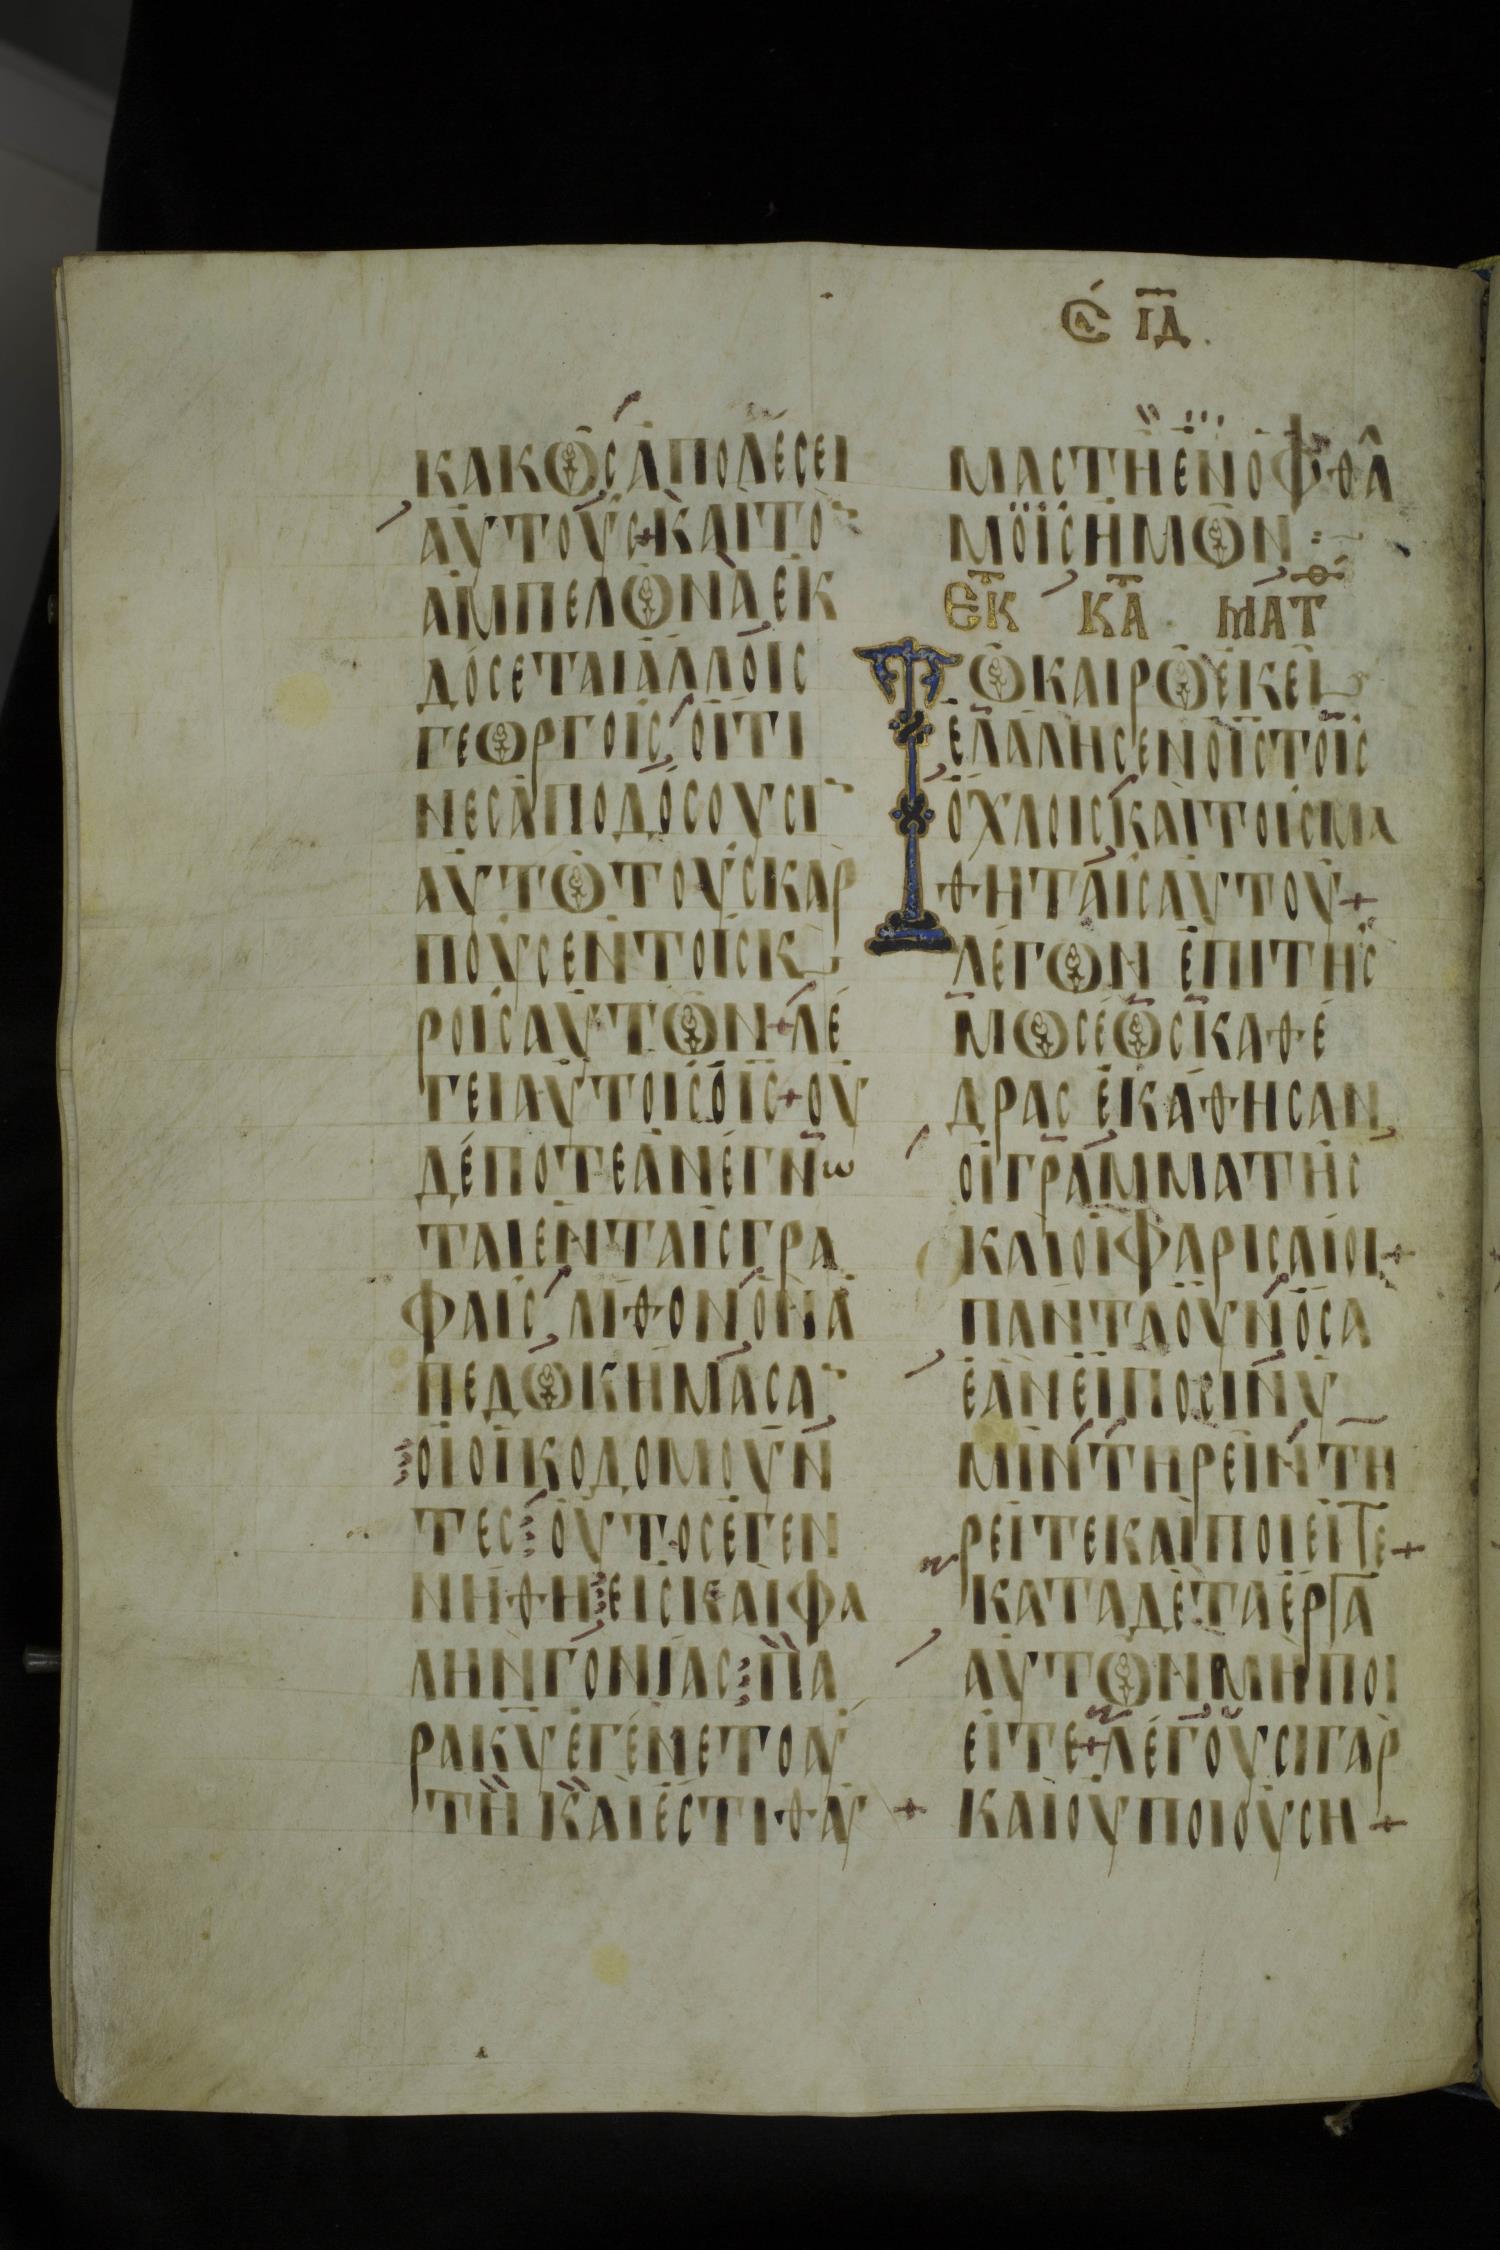 Σα ΙΔ.
ΚΑΚΩΣΑΠΟΛΕΣΕΙ
ΑΥΤΟΥΣ+ΚΑΙΤΟ̅
ΑΜΠΕΛΩΝΑΕΚ
ΔΟΣΕΤΑΙΑΛΛΟΙΣ
ΓΕΩΡΓΟΙΣ ΟΙΤΙ
ΝΕΣΑΠΟΔΟΣΟΥΣΙ̅
ΑΥΤΩΤΟΥΣΚΑΡ
ΠΟΥΣΕΝΤΟΙΣΚ
ΡΟΙΣΑΥΤΩΝ+ΛΕ
ΓΕΙΑΥΤΟΙΣΟΙΣ+ΟΥ
ΔΕΠΟΤΕΑΝΕΓΝω
ΤΑΙΕΝΤΑΙΣΓΡΑ
ΦΑΙΣ ΛΙΘΟΝΟΝΑ
ΠΕΔΩΚΗΜΑΣΑ̅
ΟΙΟΙΚΟΔΟΜΟΥΝ
ΤΕΣ ΟΥΤΟΣΕΓΕΝ
ΝΗΘΗ ΕΙΣΚΑΙΦΑ
ΛΗΝΓΟΝΙΑΣ ΠΑ
ΡΑΚΥΕΓΕΝΕΤΟΑΥ
ΤΗΚΑΙΕΣΤΙΘΑΥ
ΜΑΣΤΗΕΝΟΦΘΑΛ
ΜΟΙΣΗΜΩΝ
ΕΚ ΚΑ ΜΑΤΘ
ΤΩΚΑΙΡΩΕΚΕΙ
ΕΛΑΛΗΣΕΝΟΙΣΤΟΙΣ
ΟΧΛΟΙΣΚΑΙΤΟΙΣΜΑ
ΘΗΤΑΙΣΑΥΤΟΥ+
ΛΕΓΩΝ ΕΠΙΤΗΣ
ΜΩΣΕΩΣΚΑΘΕ
ΔΡΑΣ ΕΚΑΘΗΣΑΝ
ΟΙΓΡΑΜΜΑΤΗΣ
ΚΑΙΟΙΦΑΡΙΣΑΙΟΙ+
ΠΑΝΤΑΟΥΝΟΣΑ
ΕΑΝΕΙΠΟΣΙΝΥ
ΜΙΝΤΗΡΕΙΝΤΗ
ΡΕΙΤΕΚΑΙΠΟΙΕΙΤΕ+
ΚΑΤΑΔΕΤΑΕΡΓΑ
ΑΥΤΩΝΜΗΠΟΙ
ΕΙΤΕ+ΛΕΓΟΥΣΙΓΑΡ
+ ΚΑΙΟΥΠΟΙΟΥΣΗ+